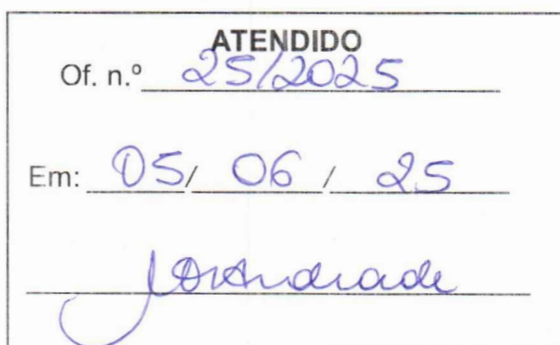 ATENDIDO
Of. n.º 25/2025
Em: 05/ 06 / 25